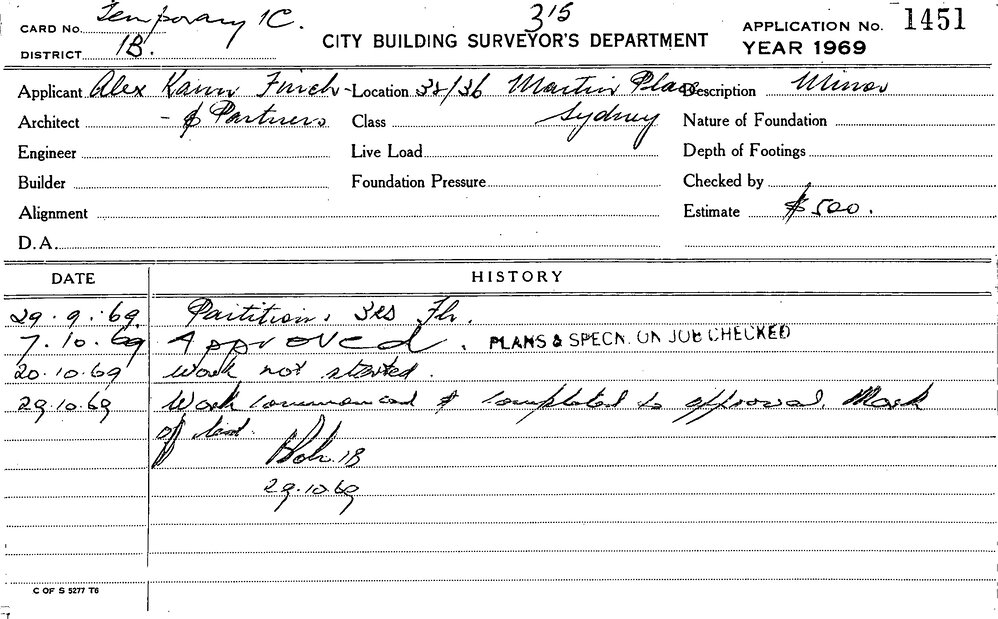 CARD No. Temporary 1C. 315 APPLICATION No. 1451
DISTRICT 1B. CITY BUILDING SURVEYOR'S DEPARTMENT YEAR 1969
Applicant Alex Kann Finch - Location 32/36 Martin Place Description Minor
Architect - & Partners Class Sydney Nature of Foundation
Engineer Live Load Depth of Footings
Builder Foundation Pressure Checked by
Alignment Estimate $500.
D.A.
DATE HISTORY
29.9.69. Partition. 3rd Flr.
7.10.69 Approved. PLANS & SPECN. ON JOB CHECKED
20.10.69 Work not started.
29.10.69 Work commenced & completed to approval. Mark
off card.
1B
29.10.69
C OF S 5277 T6